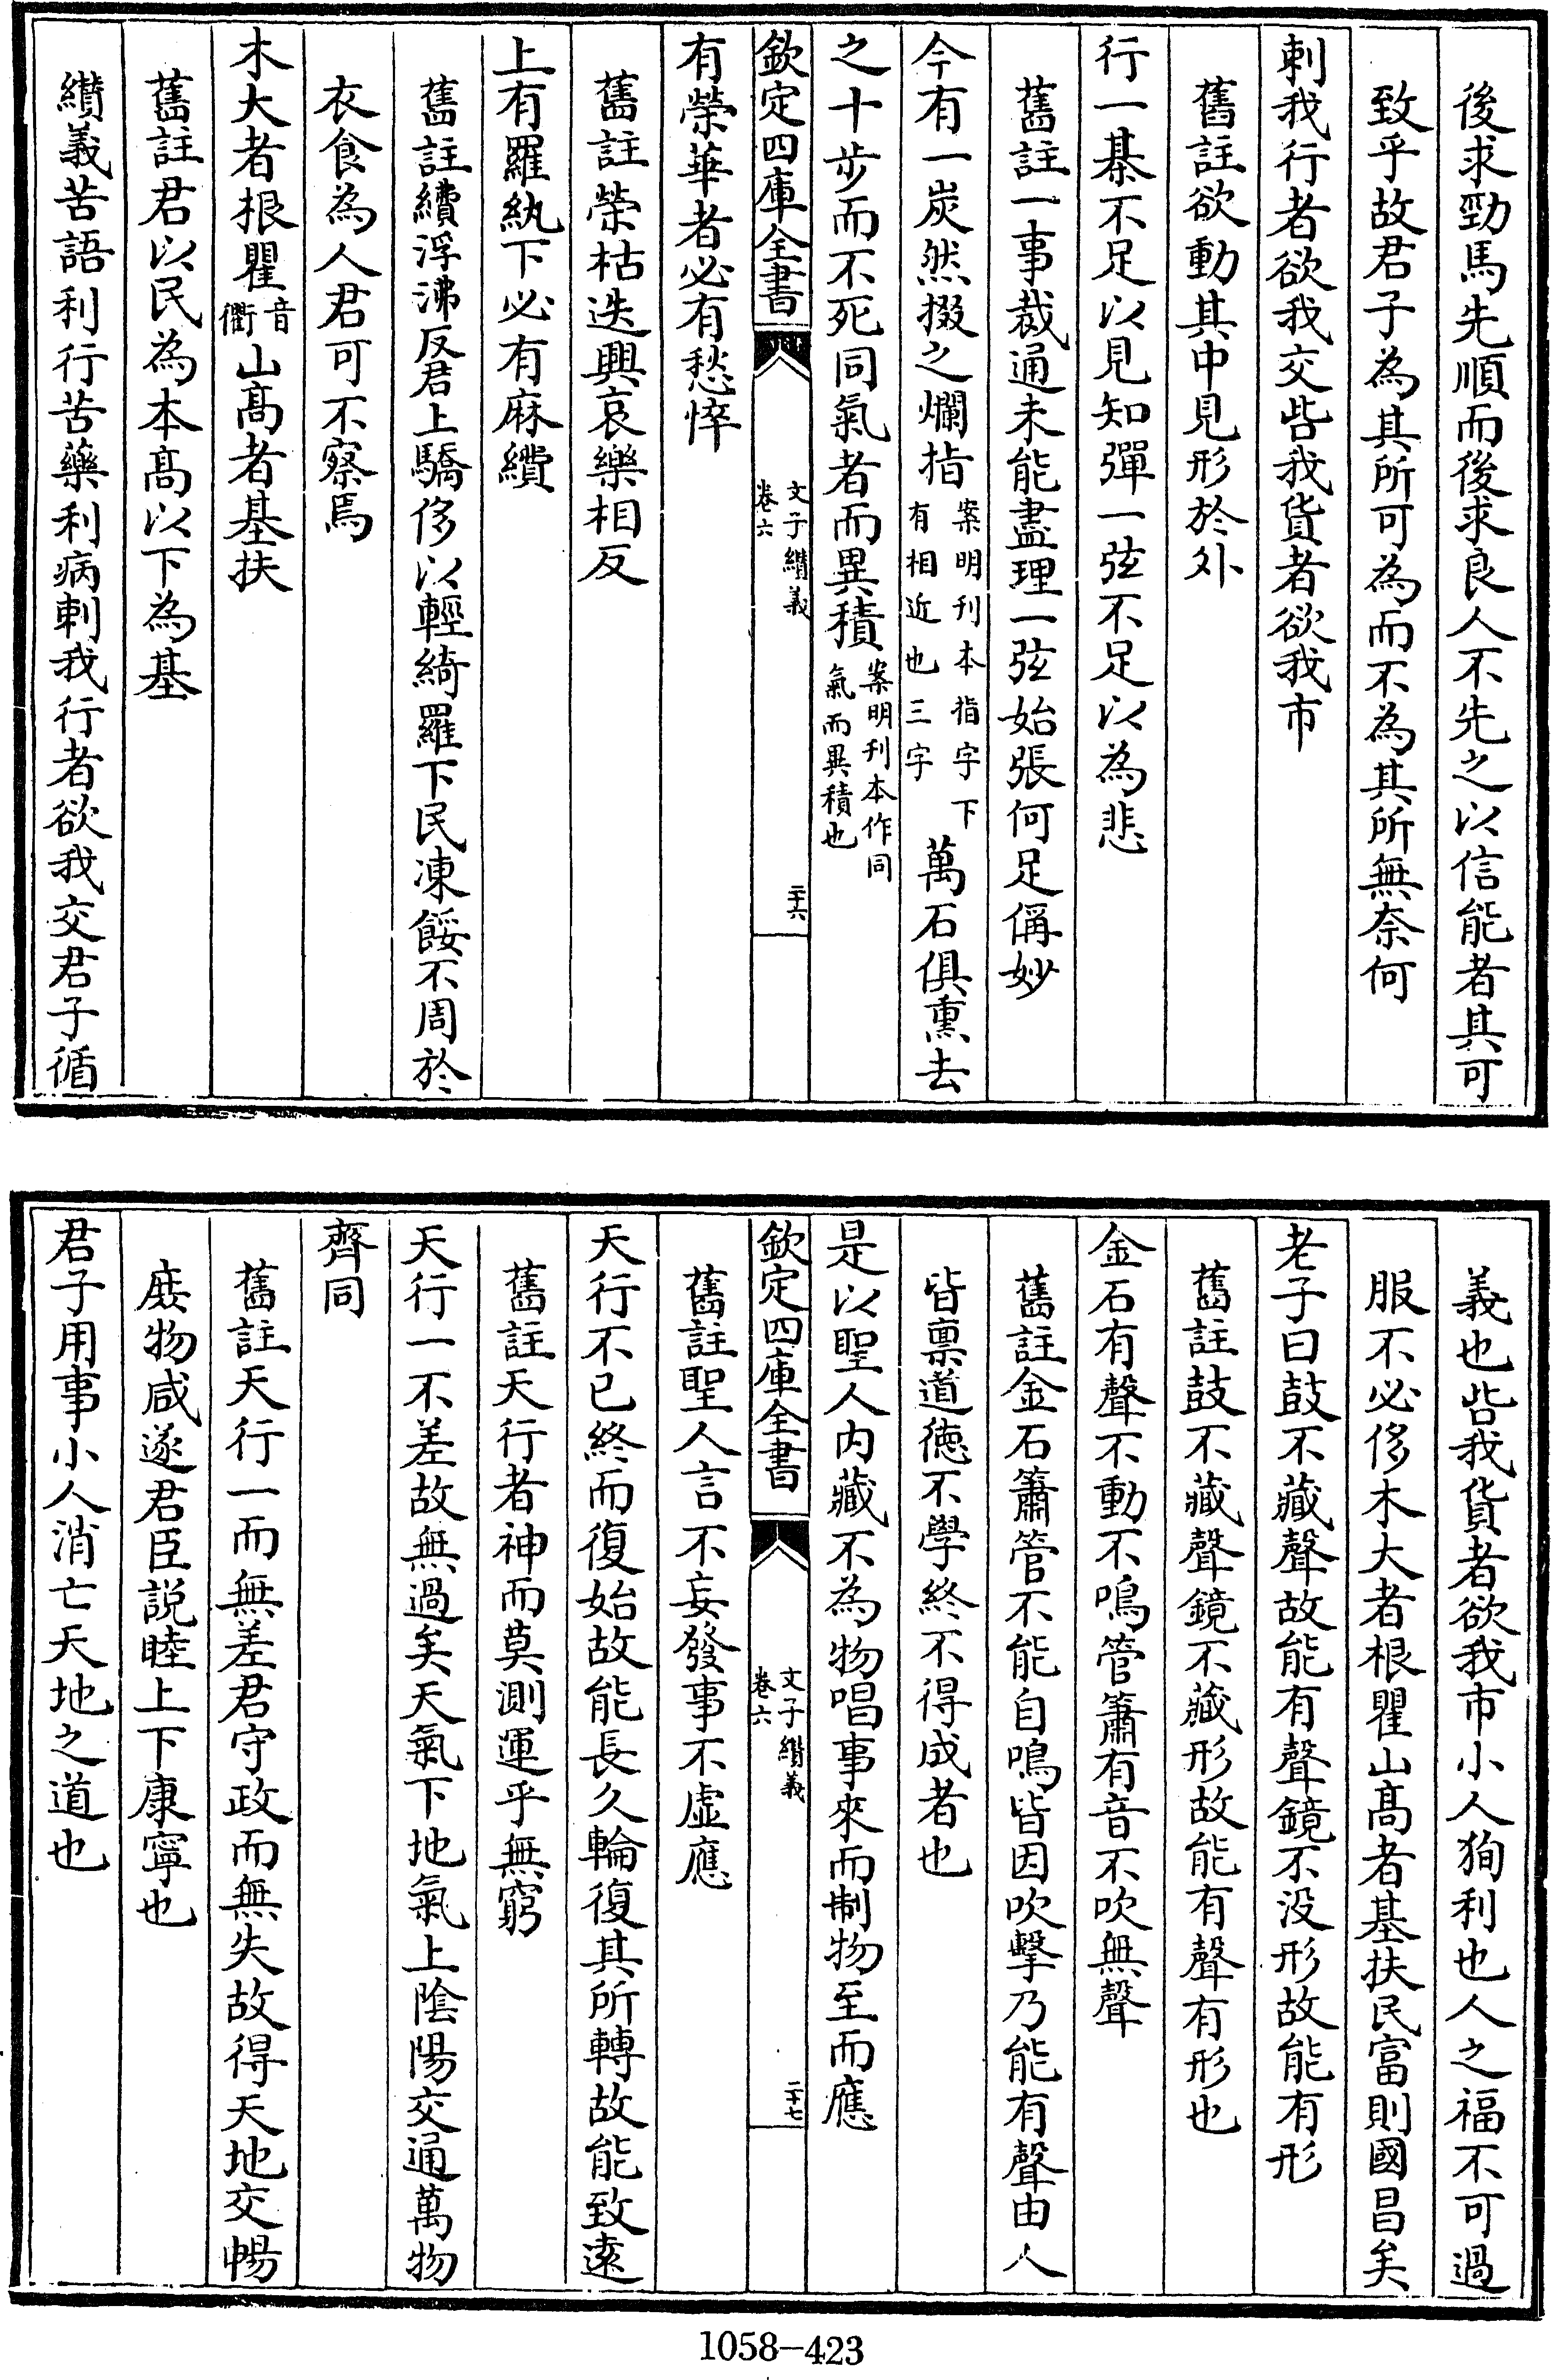 後求勁馬先順而後求良人不先之以信能者其可
致乎故君子為其所可為而不為其所無奈何
刺我行者欲我交呰我貨者欲我市
舊註欲動其中見形於外
行一棊不足以見知彈一弦不足以為悲
舊註一事裁通未能盡理一弦始張何足偁妙
今有一炭然掇之爛指案明刊本指字下有相近也三字萬石俱熏去
之十步而不死同氣者而異積案明刊本作同氣而異積也
欽定四庫全書
文子纘義
卷六
二十六
有榮華者必有愁悴
舊註榮枯迭興哀樂相反
上有羅紈下必有麻繢
舊註繢浮沸反君上驕侈以輕綺羅下民凍餒不周於
衣食為人君可不察焉
木大者根瞿音衢山高者基扶
舊註君以民為本高以下為基
纘義苦語利行苦藥利病刺我行者欲我交君子循
義也呰我貨者欲我市小人狥利也人之福不可過
服不必侈木大者根瞿山高者基扶民富則國昌矣
老子曰鼓不藏聲故能有聲鏡不没形故能有形
舊註鼓不藏聲鏡不藏形故能有聲有形也
金石有聲不動不鳴管簫有音不吹無聲
舊註金石簫管不能自鳴皆因吹擊乃能有聲由人
皆禀道徳不學終不得成者也
是以聖人内藏不為物唱事來而制物至而應
欽定四庫全書
文子纘義
卷六
二十七
舊註聖人言不妄發事不虚應
天行不已終而復始故能長久輪復其所轉故能致遠
舊註天行者神而莫測運乎無窮
天行一不差故無過矣天氣下地氣上陰陽交通萬物
齊同
舊註天行一而無差君守政而無失故得天地交暢
庻物咸遂君臣説睦上下康寧也
君子用事小人消亡天地之道也
1058-423